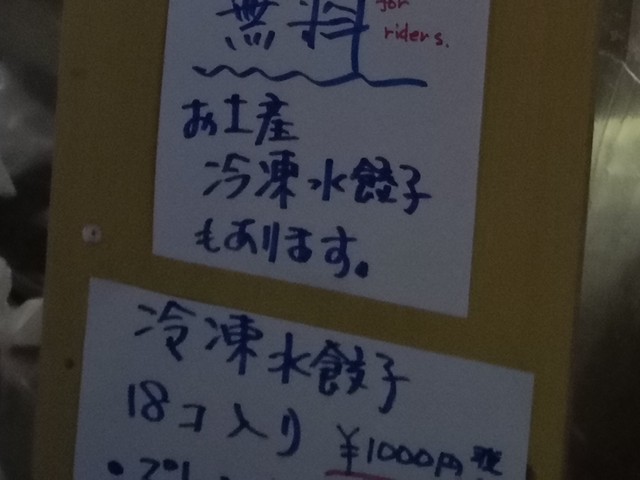 無料
for
riders.
お土産
冷凍水餃子
もあります。
冷凍水餃子
18コ入り
¥1000円